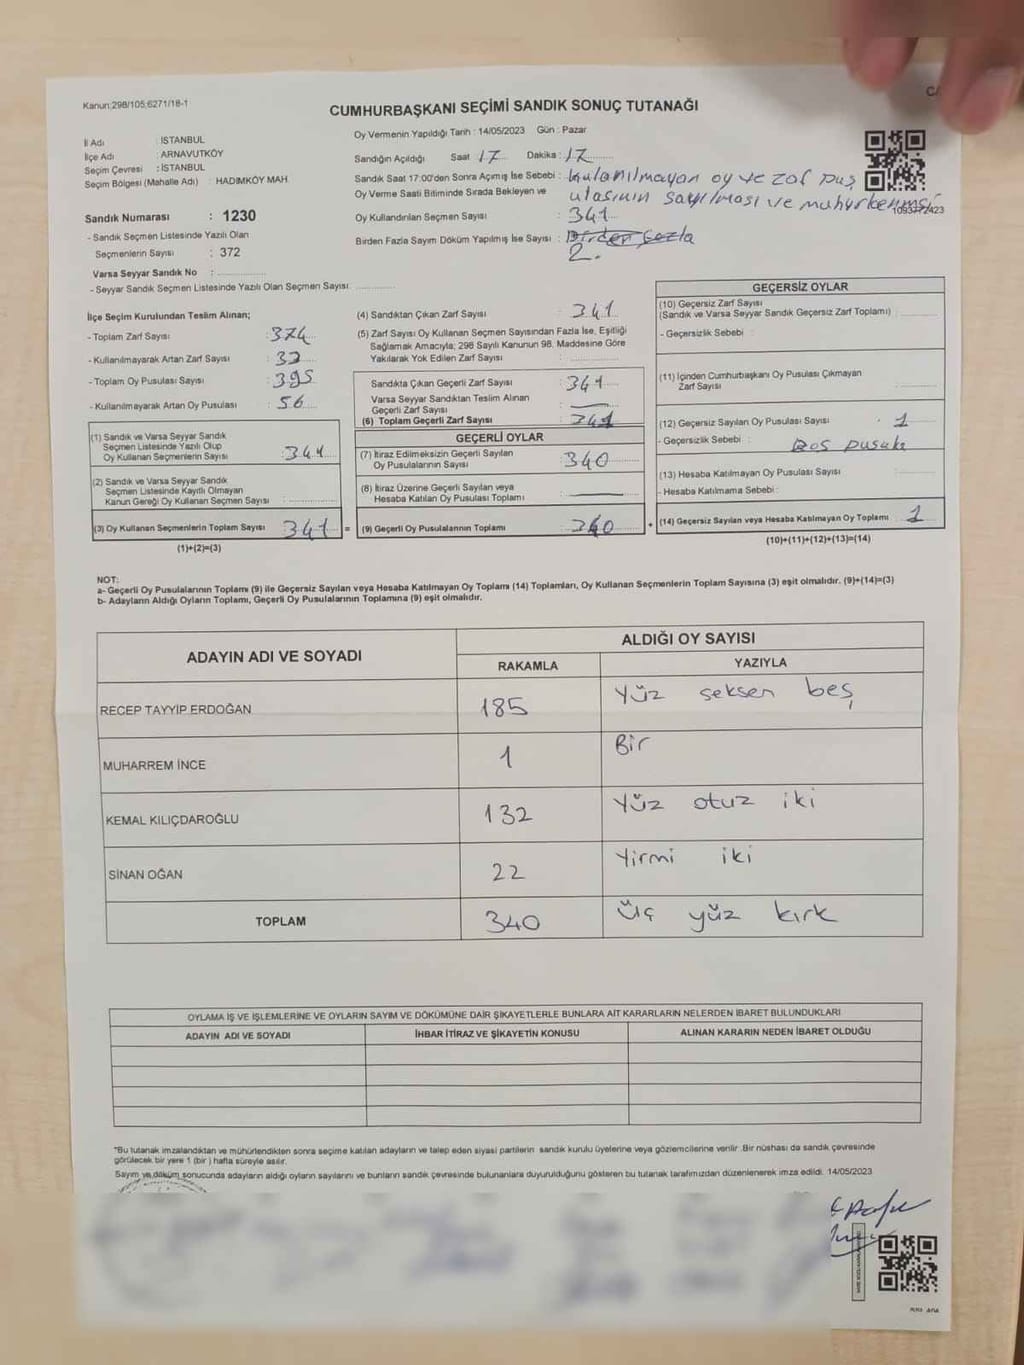 Kanun:298/105;6271/18-1
CUMHURBAŞKANI SEÇİMİ SANDIK SONUÇ TUTANAĞI
İl Adı : İSTANBUL
İlçe Adı : ARNAVUTKÖY
Seçim Çevresi : İSTANBUL
Seçim Bölgesi (Mahalle Adı) : HADIMKÖY MAH.
Sandık Numarası : 1230
- Sandık Seçmen Listesinde Yazılı Olan
Seçmenlerin Sayısı : 372
Varsa Seyyar Sandık No :
- Seyyar Sandık Seçmen Listesinde Yazılı Olan Seçmen Sayısı:
Oy Vermenin Yapıldığı Tarih : 14/05/2023 Gün : Pazar
Sandığın Açıldığı Saat 17 Dakika : 17
Sandık Saat 17:00'den Sonra Açımış İse Sebebi : kulanılmayan oy ve zaf pus
Oy Verme Saati Bitiminde Sırada Bekleyen ve ulasının sayılması ve muhurkenmsi
1093772423
Oy Kullandırılan Seçmen Sayısı : 341
Birden Fazla Sayım Döküm Yapılmış İse Sayısı : Birden fazla
2.
İlçe Seçim Kurulundan Teslim Alınan;
- Toplam Zarf Sayısı : 374
- Kullanılmayarak Artan Zarf Sayısı : 33
- Toplam Oy Pusulası Sayısı : 395
- Kullanılmayarak Artan Oy Pusulası : 56
(1) Sandık ve Varsa Seyyar Sandık
Seçmen Listesinde Yazılı Olup
Oy Kullanan Seçmenlerin Sayısı : 341
(2) Sandık ve Varsa Seyyar Sandık
Seçmen Listesinde Kayıtlı Olmayan
Kanun Gereği Oy Kullanan Seçmen Sayısı :
(3) Oy Kullanan Seçmenlerin Toplam Sayısı 341 =
(1)+(2)=(3)
(4) Sandıktan Çıkan Zarf Sayısı : 341
(5) Zarf Sayısı Oy Kullanan Seçmen Sayısından Fazla İse, Eşitliği
Sağlamak Amacıyla; 298 Sayılı Kanunun 98. Maddesine Göre
Yakılarak Yok Edilen Zarf Sayısı :
Sandıkta Çıkan Geçerli Zarf Sayısı : 341
Varsa Seyyar Sandıktan Teslim Alınan
Geçerli Zarf Sayısı :
(6) Toplam Geçerli Zarf Sayısı : 341
GEÇERLİ OYLAR
(7) İtiraz Edilmeksizin Geçerli Sayılan
Oy Pusulalarının Sayısı : 340
(8) İtiraz Üzerine Geçerli Sayılan veya
Hesaba Katılan Oy Pusulası Toplamı :
(9) Geçerli Oy Pusulalarının Toplamı : 340 +
GEÇERSİZ OYLAR
(10) Geçersiz Zarf Sayısı
(Sandık ve Varsa Seyyar Sandık Geçersiz Zarf Toplamı) :
- Geçersizlik Sebebi :
(11) İçinden Cumhurbaşkanı Oy Pusulası Çıkmayan
Zarf Sayısı :
(12) Geçersiz Sayılan Oy Pusulası Sayısı : 1
- Geçersizlik Sebebi : Boş pusula
(13) Hesaba Katılmayan Oy Pusulası Sayısı :
- Hesaba Katılmama Sebebi :
(14) Geçersiz Sayılan veya Hesaba Katılmayan Oy Toplamı : 1
(10)+(11)+(12)+(13)=(14)
NOT:
a- Geçerli Oy Pusulalarının Toplamı (9) ile Geçersiz Sayılan veya Hesaba Katılmayan Oy Toplamı (14) Toplamları, Oy Kullanan Seçmenlerin Toplam Sayısına (3) eşit olmalıdır. (9)+(14)=(3)
b- Adayların Aldığı Oyların Toplamı, Geçerli Oy Pusulalarının Toplamına (9) eşit olmalıdır.
ADAYIN ADI VE SOYADI ALDIĞI OY SAYISI
RAKAMLA YAZIYLA
RECEP TAYYİP ERDOĞAN 185 Yüz seksen beş
MUHARREM İNCE 1 Bir
KEMAL KILIÇDAROĞLU 132 Yüz otuz iki
SİNAN OĞAN 22 Yirmi iki
TOPLAM 340 Üç yüz kırk
OYLAMA İŞ VE İŞLEMLERİNE VE OYLARIN SAYIM VE DÖKÜMÜNE DAİR ŞİKAYETLERLE BUNLARA AİT KARARLARIN NELERDEN İBARET BULUNDUKLARI
ADAYIN ADI VE SOYADI İHBAR İTİRAZ VE ŞİKAYETİN KONUSU ALINAN KARARIN NEDEN İBARET OLDUĞU
*Bu tutanak imzalandıktan ve mühürlendikten sonra seçime katılan adayların ve talep eden siyasi partilerin sandık kurulu üyelerine veya gözlemcilerine verilir. Bir nüshası da sandık çevresinde
görülecek bir yere 1 (bir ) hafta süreyle asılır.
Sayım ve döküm sonucunda adayların aldığı oyların sayılarını ve bunların sandık çevresinde bulunanlara duyurulduğunu gösteren bu tutanak tarafımızdan düzenlenerek imza edildi. 14/05/2023